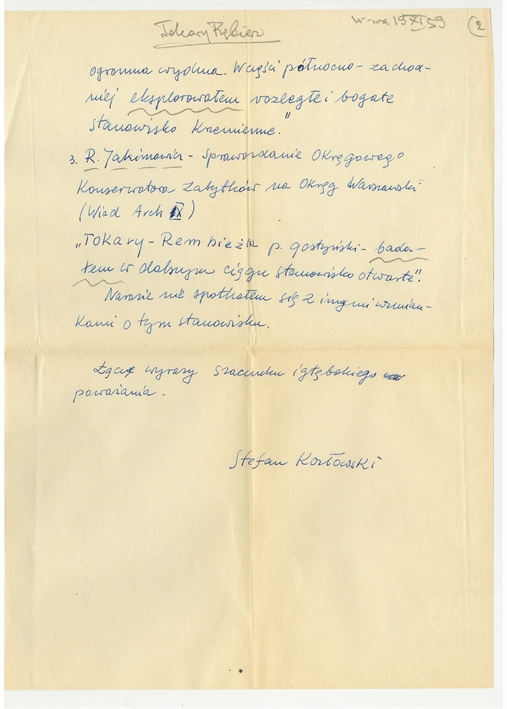 Tokary Rębierz
W-wa 19 XI 59
2
ogromna wydma. W części północno-zachod-
niej eksplorowałem rozległe i bogate
stanowisko krzemienne."
3. R. Jakimowicz - Sprawozdanie Okręgowego
Konserwatora Zabytków na Okręg Warszawski
(Wiad Arch IX)
„Tokary-Rembierz p. gostyński - bada-
łem w dalszym ciągu stanowisko otwarte".
Narazie nie spotkałem się z innymi wzmian-
kami o tym stanowisku.
Łączę wyrazy szacunku i głębokiego
poważania.
Stefan Kozłowski